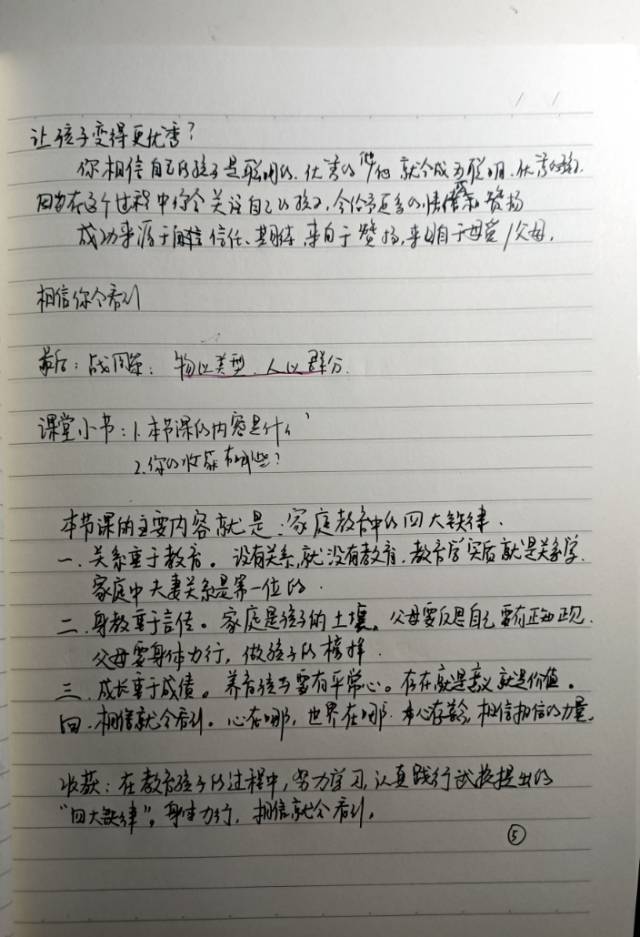 让孩子变得更优秀？
你相信自己的孩子是聪明的、优秀的 他就会成为聪明、优秀的孩子
因为在这个过程中你会关注自己的孩子，会给予更多的 赞扬
成功来源于 信任、 来自于赞扬，来自于母爱/父母。
相信你会看到
最后：战 ：物以类型、人以群分.
课堂小书：1.本节课的内容是什么
2.你的收获有哪些？
本节课的主要内容就是：家庭教育中的四大铁律.
一、关系重于教育。没有关系，就没有教育。教育学实质就是关系学.
家庭中夫妻关系是第一位的.
二、身教重于言传。家庭是孩子的土壤。父母要反思自己要有正知正见.
父母要身体力行，做孩子的榜样.
三、成长重于成绩。养育孩子要有平常心。存在就是意义就是价值。
四、相信就会看到。心在哪，世界在哪. 心存 ，相信相信的力量。
收获：在教育孩子的过程中，努力学习，认真践行 提出的
“四大铁律”。身体力行，相信就会看到。
⑤